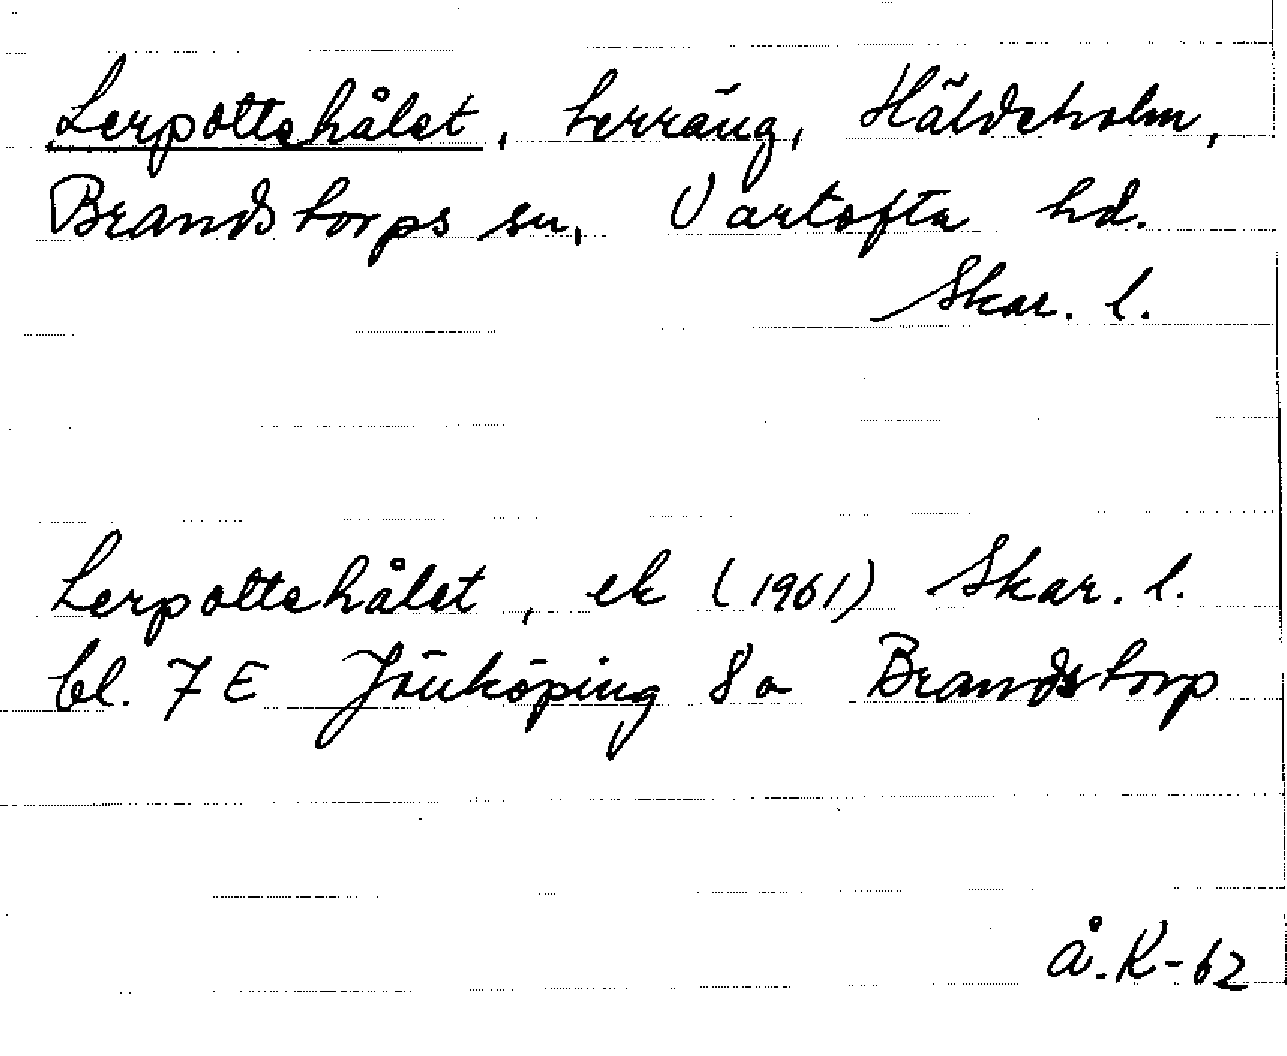 Lerpottehålet, terräng, Häldeholm,
Brandstorps sn, Vartofta hd.
Skar. l.
Lerpottehålet, ek (1961) Skar. l.
bl. 7 E Jönköping 8 a Brandstorp
Å.K-62